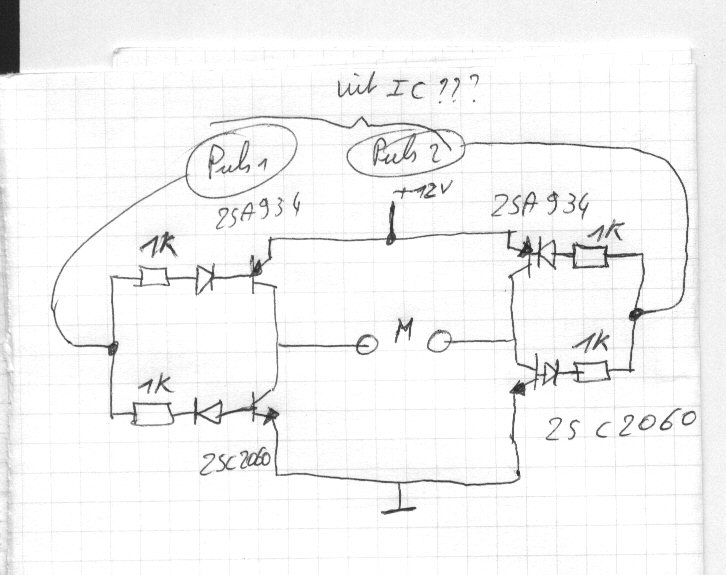 mit IC ???
Puls 1
Puls 2
+12V
2SA934
2SA934
1K
1K
M
1K
1K
2SC2060
2SC2060